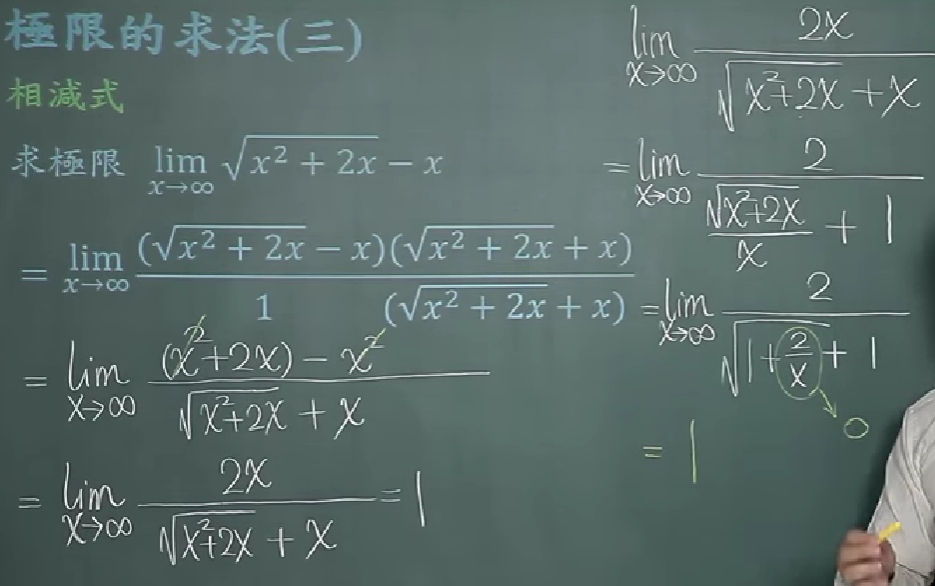 極限的求法(三)
相減式
求極限 lim x→∞ √(x² + 2x) − x
= lim x→∞ (√(x² + 2x) − x)(√(x² + 2x) + x) / 1 (√(x² + 2x) + x)
= lim x→∞ (x²+2x) − x² / √(x²+2x) + x
= lim x→∞ 2x / √(x²+2x) + x = 1
lim x→∞ 2x / √(x²+2x) + x
= lim x→∞ 2 / √(x²+2x)/x + 1
= lim x→∞ 2 / √(1+2/x) + 1
0
= 1